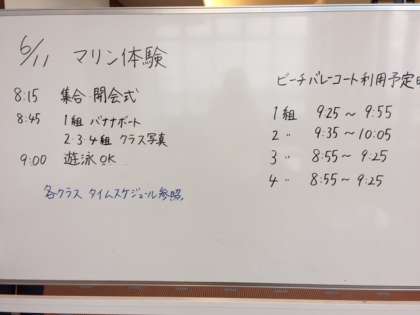 6/11 マリン体験
8:15 集合 開会式
8:45 1組 バナナボート
2・3・4組 クラス写真
9:00 遊泳OK
各クラス タイムスケジュール参照。
ビーチバレーコート利用予定
1組 9:25～9:55
2〃 9:35～10:05
3〃 8:55～9:25
4〃 8:55～9:25